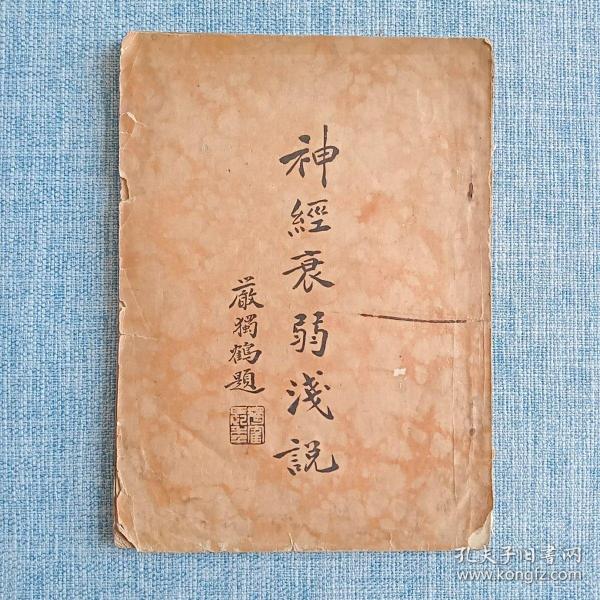 神經衰弱淺説
嚴獨鶴題
孔夫子旧书网
www.kongfz.com